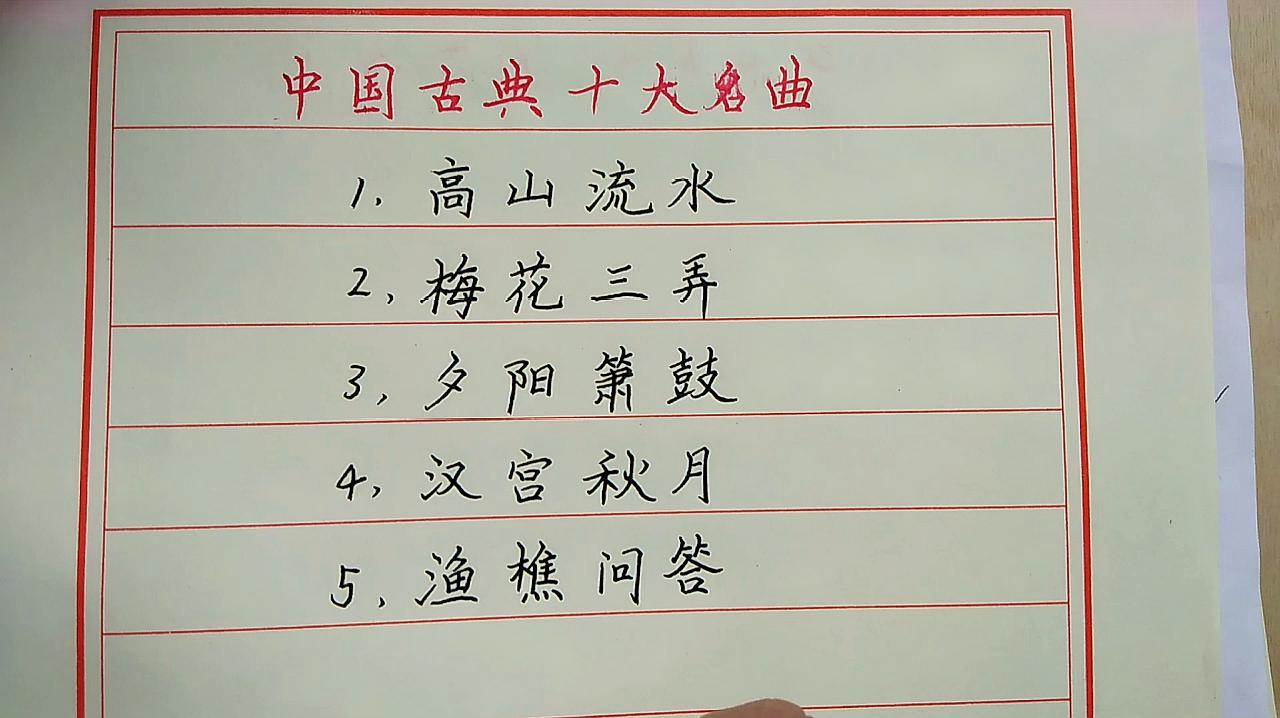 中国古典十大名曲
1. 高山流水
2, 梅花三弄
3, 夕阳箫鼓
4, 汉宫秋月
5, 渔樵问答